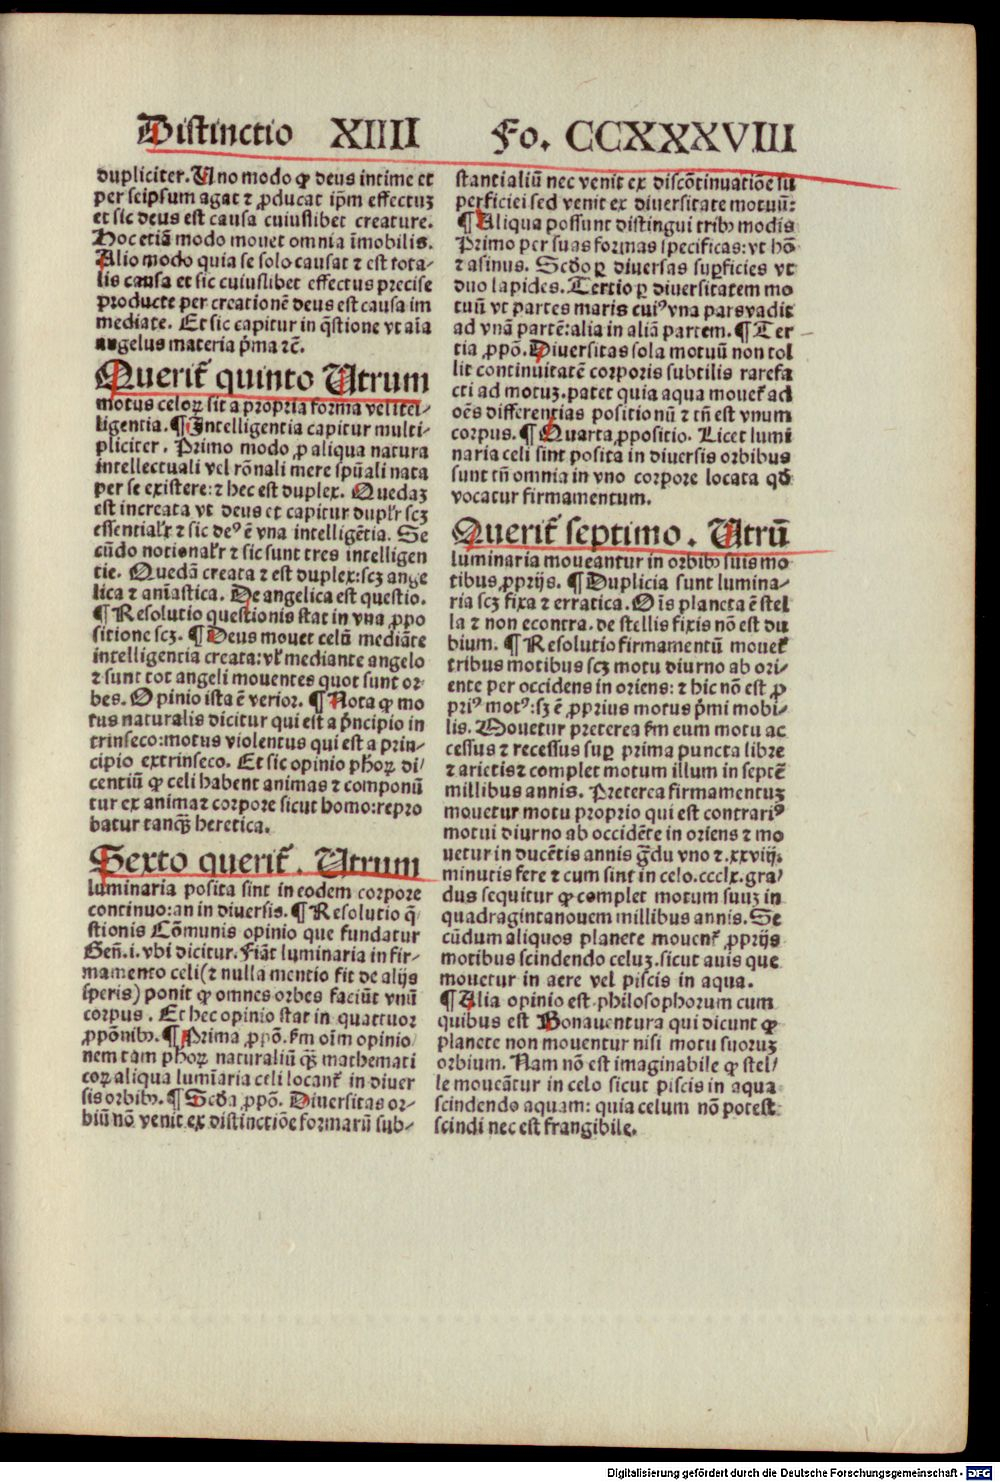 Distinctio XIIII Fo. CCXXXVIII
dupliciter. Uno modo ꝙ deus intime et
per seipsum agat ⁊ ꝓducat ip̄m effectuꝫ
et sic deus est causa cuiuslibet creature.
Hoc etiā modo mouet omnia īmobilis.
Alio modo quia se solo causat ⁊ est tota-
lis causa et sic cuiuslibet effectus precise
producte per creationē deus est causa im
mediate. Et sic capitur in q̄stione vt aīa
angelus materia p̄ma ⁊c̄.
Querit̄ quinto Utrum
motus celoꝝ sit a propria forma vel itel-
ligentia. ¶ Intelligentia capitur multi-
pliciter. Primo modo ꝓ aliqua natura
intellectuali vel rōnali mere sp̄uali nata
per se existere: ⁊ hec est duplex. Quedaꝫ
est increata vt deus et capitur duplr̄ scꝫ
essentialr̄ ⁊ sic deꝰ ē vna intelligētia. Se
cūdo notionalr̄ ⁊ sic sunt tres intelligen
tie. Quedā creata ⁊ est duplex: scꝫ ange
lica ⁊ anīastica. De angelica est questio.
¶ Resolutio questionis stat in vna ꝓpo
sitione scꝫ. ¶ Deus mouet celū mediāte
intelligentia creata: vl̄ mediante angelo
⁊ sunt tot angeli mouentes quot sunt or-
bes. Opinio ista ē verior. ¶ Nota ꝙ mo
tus naturalis dicitur qui est a p̄ncipio in
trinseco: motus violentus qui est a prin-
cipio extrinseco. Et sic opinio ph̄oꝝ di-
centiū ꝙ celi habent animas ⁊ componū
tur ex anima ⁊ corpore sicut homo: repro
batur tanqꝫ heretica.
Sexto querit̄. Utrum
luminaria posita sint in eodem corpore
continuo: an in diuersis. ¶ Resolutio q̄-
stionis Cōmunis opinio que fundatur
Geñ. i. vbi dicitur. Fiāt luminaria in fir-
mamento celi (⁊ nulla mentio fit de alijs
speris) ponit ꝙ omnes orbes faciūt vnū
corpus. Et hec opinio stat in quattuor
ꝓpōnibꝫ. ¶ Prima ꝓpō. ẜm oīm opinio
nem tam ph̄oꝝ naturaliū qꝫ mathemati
coꝝ aliqua lumīaria celi locant̄ in diuer
sis orbibꝫ. ¶ Scd̄a ꝓpō. Diuersitas or-
biū nō venit ex distinctiōe formarū sub-
stantialiū nec venit ex discōtinuatiōe su
perficiei sed venit ex diuersitate motuū:
¶ Aliqua possunt distingui tribꝫ modis
Primo per suas formas specificas: vt hō
⁊ asinus. Scd̄o ꝑ diuersas suꝑficies vt
duo lapides. Tertio ꝑ diuersitatem mo
tuū vt partes maris cuiꝰ vna pars vadit
ad vnā partē: alia in aliā partem. ¶ Ter-
tia ꝓpō. Diuersitas sola motuū non tol
lit continuitatē corporis subtilis rarefa
cti ad motuꝫ. patet quia aqua mouet̄ ad
oēs differentias positionū ⁊ tn̄ est vnum
corpus. ¶ Quarta ꝓpositio. Licet lumi
naria celi sint posita in diuersis orbibus
sunt tn̄ omnia in vno corpore locata qd̄
vocatur firmamentum.
Querit̄ septimo. Utrū
luminaria moueantur in orbibꝫ suis mo
tibus ꝓprijs. ¶ Duplicia sunt lumina-
ria scꝫ fixa ⁊ erratica. Oīs planeta ē stel
la ⁊ non econtra. de stellis fixis nō est du
bium. ¶ Resolutio firmamentū mouet̄
tribus motibus scꝫ motu diurno ab ori-
ente per occidens in oriens: ⁊ hic nō est ꝓ
priꝰ motꝰ: sꝫ ē ꝓprius motus p̄mi mobi-
lis. Mouetur preterea ẜm eum motu ac
cessus ⁊ recessus suꝑ prima puncta libre
⁊ arietis ⁊ complet motum illum in septē
millibus annis. Preterea firmamentuꝫ
mouetur motu proprio qui est contrariꝰ
motui diurno ab occidēte in oriens ⁊ mo
uetur in ducētis annis gͣdu vno ⁊ .xxviij.
minutis fere ⁊ cum sint in celo .ccclx. gra-
dus sequitur ꝙ complet motum suuꝫ in
quadraginta nouem millibus annis. Se
cūdum aliquos planete mouent̄ ꝓprijs
motibus scindendo celuꝫ. sicut auis que
mouetur in aere vel piscis in aqua.
¶ Alia opinio est philosophorum cum
quibus est Bonauentura qui dicunt ꝙ
planete non mouentur nisi motu suoruꝫ
orbium. Nam nō est imaginabile ꝙ stel-
le moueātur in celo sicut piscis in aqua
scindendo aquam: quia celum nō potest
scindi nec est frangibile.
Digitalisierung gefördert durch die Deutsche Forschungsgemeinschaft - DFG